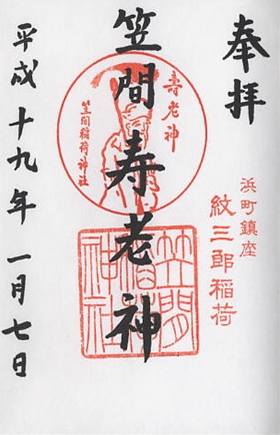 奉拝
浜町鎮座
紋三郎稲荷
笠間寿老神
寿老神
笠間稲荷神社
笠間
稲荷
神社
平成十九年一月七日